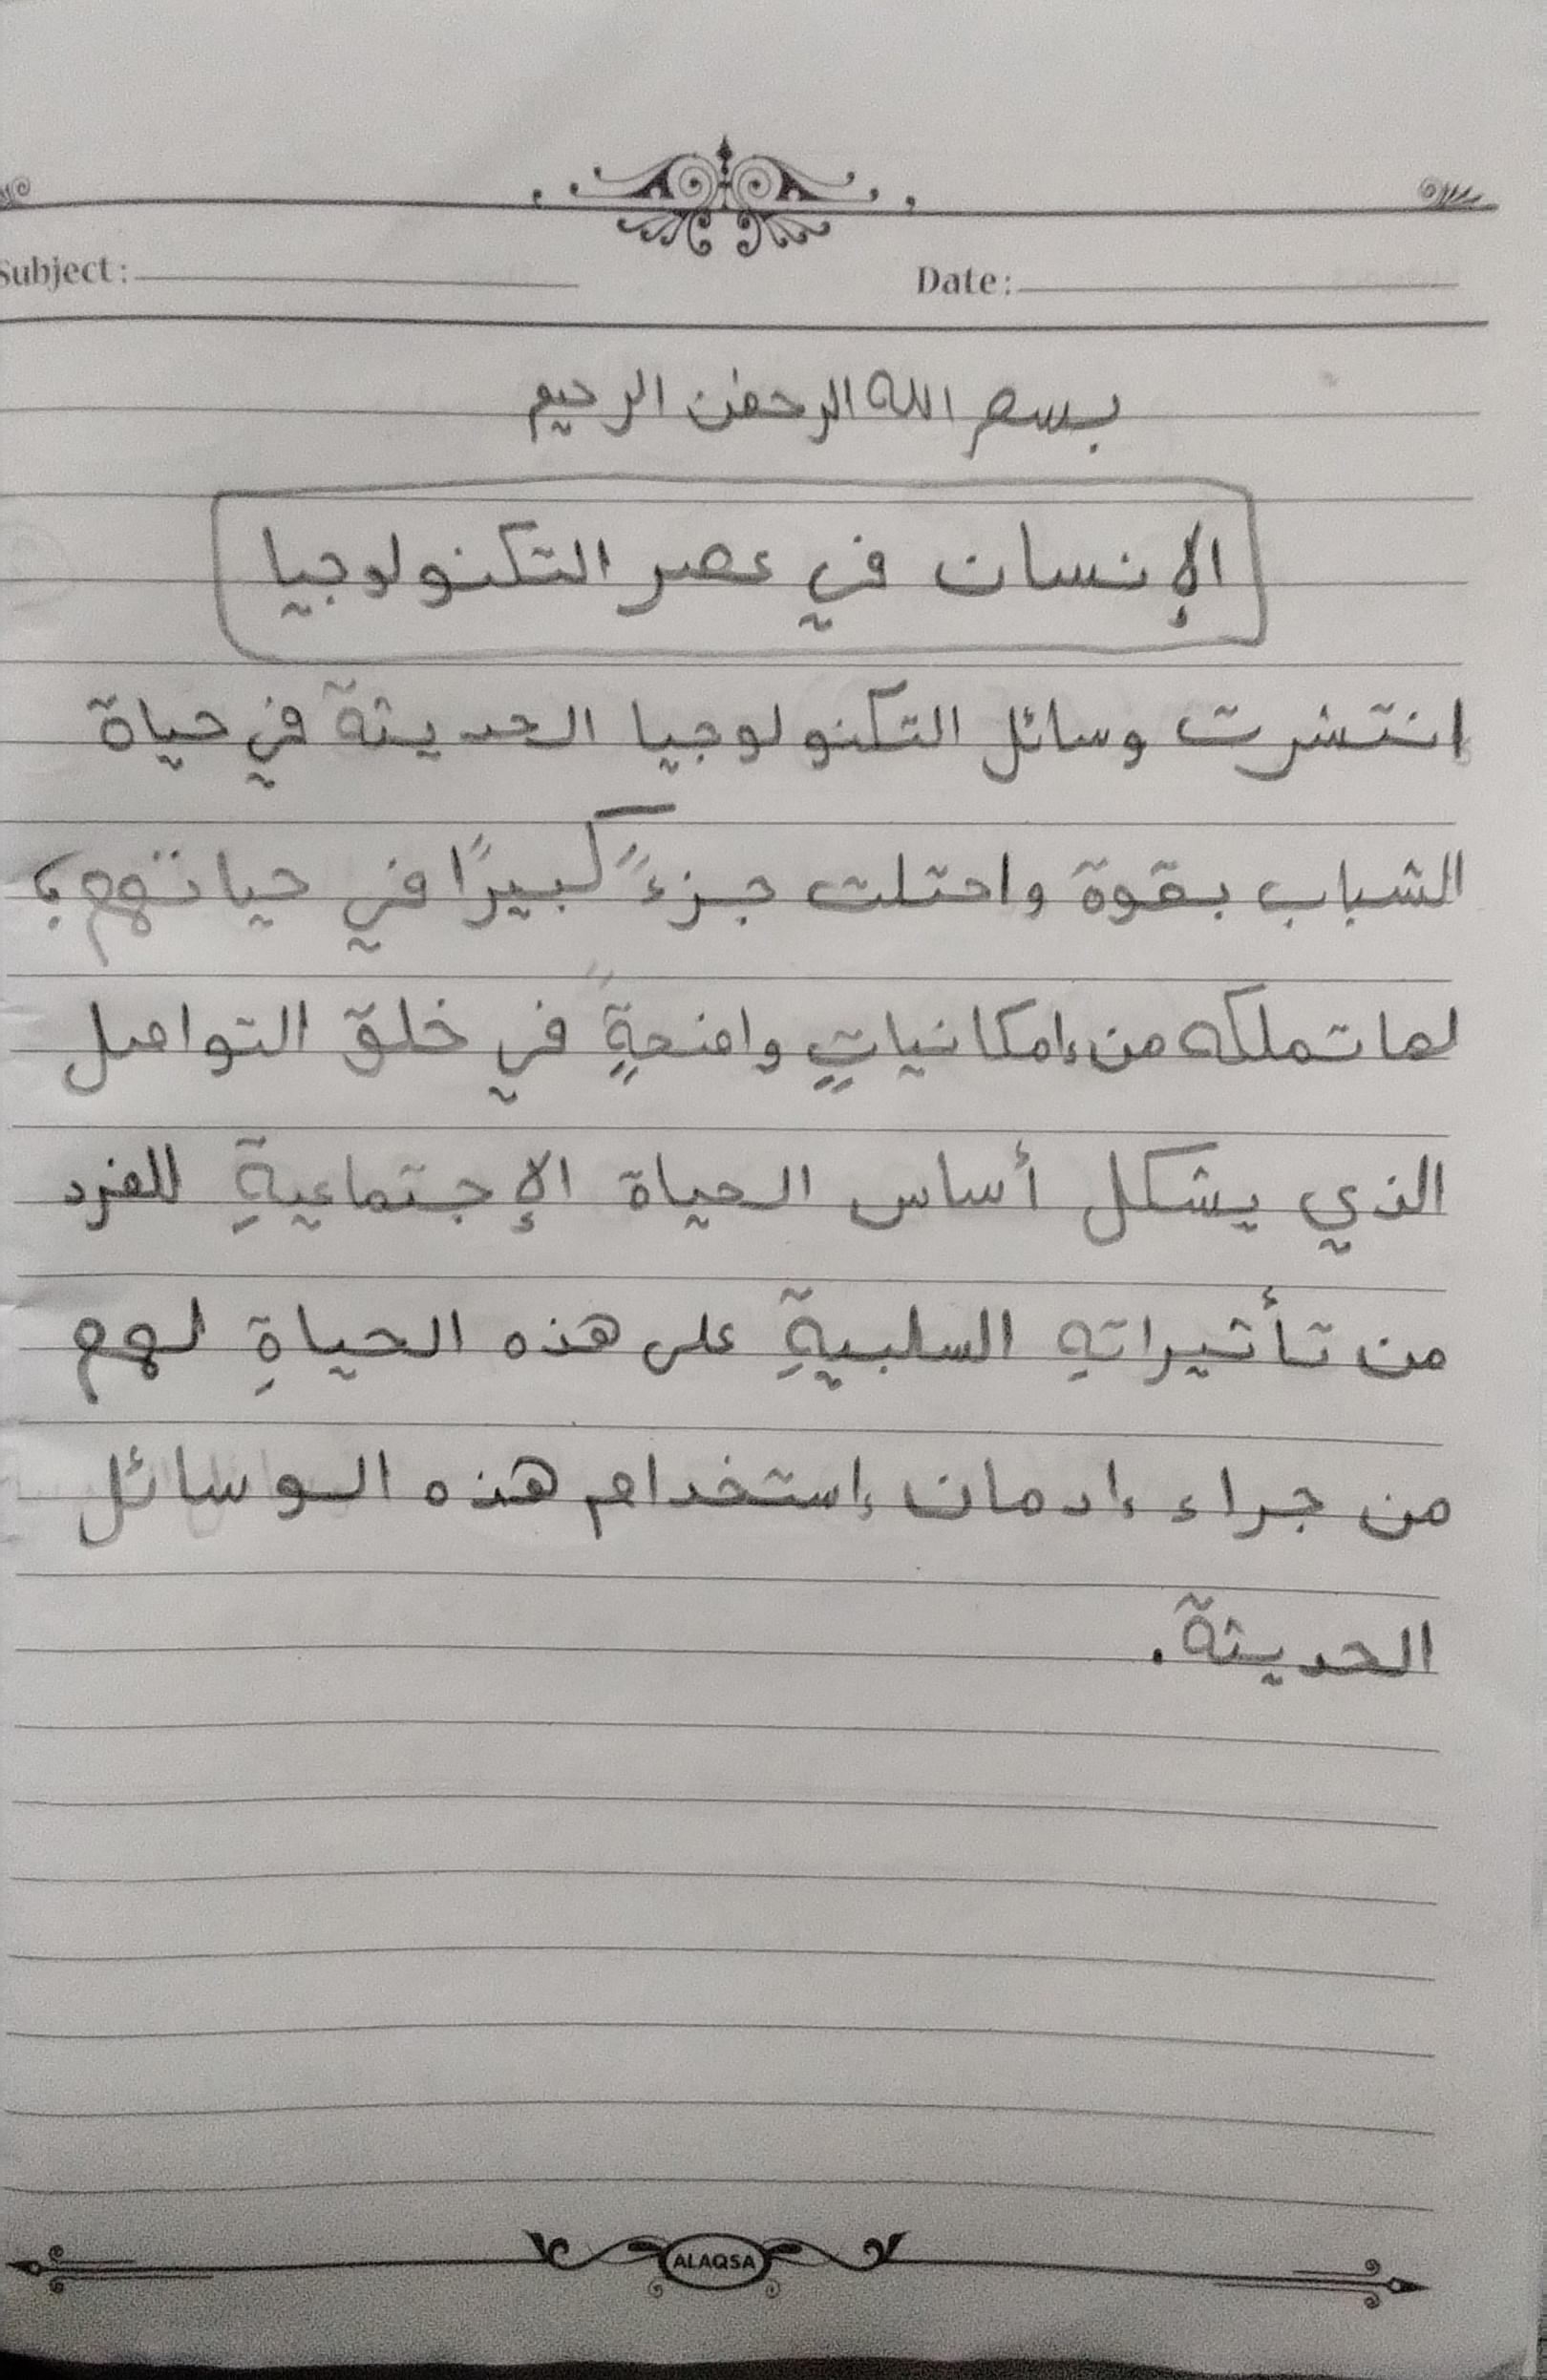 Subject:
Date:
بسم الله الرحمن الرحيم
الإنسان في عصر التكنولوجيا
انتشرت وسائل التكنولوجيا الحديثة في حياة
الشباب بقوة واحتلت جزءً كبيرًا في حياتهم؛
لما تملكه من إمكانياتٍ واضحةٍ في خلق التواصل
الذي يشكل أساس الحياة الإجتماعيةِ للفرد
من تأثيراتهِ السلبيةِ على هذه الحياةِ لهم
من جراء إدمان إستخدام هذه الوسائل
الحديثة.
ALAQSA